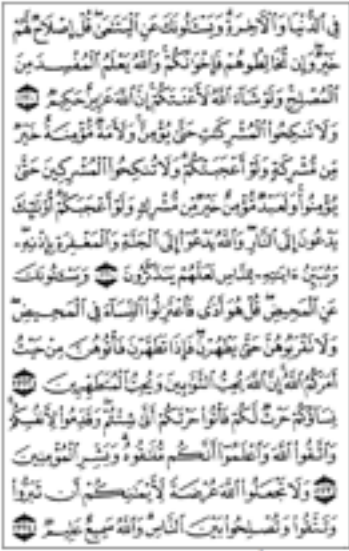 فِي ٱلدُّنۡيَا وَٱلۡأٓخِرَةِۗ وَيَسۡـَٔلُونَكَ عَنِ ٱلۡيَتَٰمَىٰۖ قُلۡ إِصۡلَاحٞ لَّهُمۡ
خَيۡرٞۖ وَإِن تُخَالِطُوهُمۡ فَإِخۡوَٰنُكُمۡۚ وَٱللَّهُ يَعۡلَمُ ٱلۡمُفۡسِدَ مِنَ
ٱلۡمُصۡلِحِۚ وَلَوۡ شَآءَ ٱللَّهُ لَأَعۡنَتَكُمۡۚ إِنَّ ٱللَّهَ عَزِيزٌ حَكِيمٞ ٢٢٠
وَلَا تَنكِحُواْ ٱلۡمُشۡرِكَٰتِ حَتَّىٰ يُؤۡمِنَّۚ وَلَأَمَةٞ مُّؤۡمِنَةٌ خَيۡرٞ
مِّن مُّشۡرِكَةٖ وَلَوۡ أَعۡجَبَتۡكُمۡۗ وَلَا تُنكِحُواْ ٱلۡمُشۡرِكِينَ حَتَّىٰ
يُؤۡمِنُواْۚ وَلَعَبۡدٞ مُّؤۡمِنٌ خَيۡرٞ مِّن مُّشۡرِكٖ وَلَوۡ أَعۡجَبَكُمۡۗ أُوْلَٰٓئِكَ
يَدۡعُونَ إِلَى ٱلنَّارِۖ وَٱللَّهُ يَدۡعُوٓاْ إِلَى ٱلۡجَنَّةِ وَٱلۡمَغۡفِرَةِ بِإِذۡنِهِۦۖ
وَيُبَيِّنُ ءَايَٰتِهِۦ لِلنَّاسِ لَعَلَّهُمۡ يَتَذَكَّرُونَ ٢٢١ وَيَسۡـَٔلُونَكَ
عَنِ ٱلۡمَحِيضِۖ قُلۡ هُوَ أَذٗى فَٱعۡتَزِلُواْ ٱلنِّسَآءَ فِي ٱلۡمَحِيضِ
وَلَا تَقۡرَبُوهُنَّ حَتَّىٰ يَطۡهُرۡنَۖ فَإِذَا تَطَهَّرۡنَ فَأۡتُوهُنَّ مِنۡ حَيۡثُ
أَمَرَكُمُ ٱللَّهُۚ إِنَّ ٱللَّهَ يُحِبُّ ٱلتَّوَّٰبِينَ وَيُحِبُّ ٱلۡمُتَطَهِّرِينَ ٢٢٢
نِسَآؤُكُمۡ حَرۡثٞ لَّكُمۡ فَأۡتُواْ حَرۡثَكُمۡ أَنَّىٰ شِئۡتُمۡۖ وَقَدِّمُواْ لِأَنفُسِكُمۡۚ
وَٱتَّقُواْ ٱللَّهَ وَٱعۡلَمُوٓاْ أَنَّكُم مُّلَٰقُوهُۗ وَبَشِّرِ ٱلۡمُؤۡمِنِينَ
٢٢٣ وَلَا تَجۡعَلُواْ ٱللَّهَ عُرۡضَةٗ لِّأَيۡمَٰنِكُمۡ أَن تَبَرُّواْ
وَتَتَّقُواْ وَتُصۡلِحُواْ بَيۡنَ ٱلنَّاسِۚ وَٱللَّهُ سَمِيعٌ عَلِيمٞ ٢٢٤